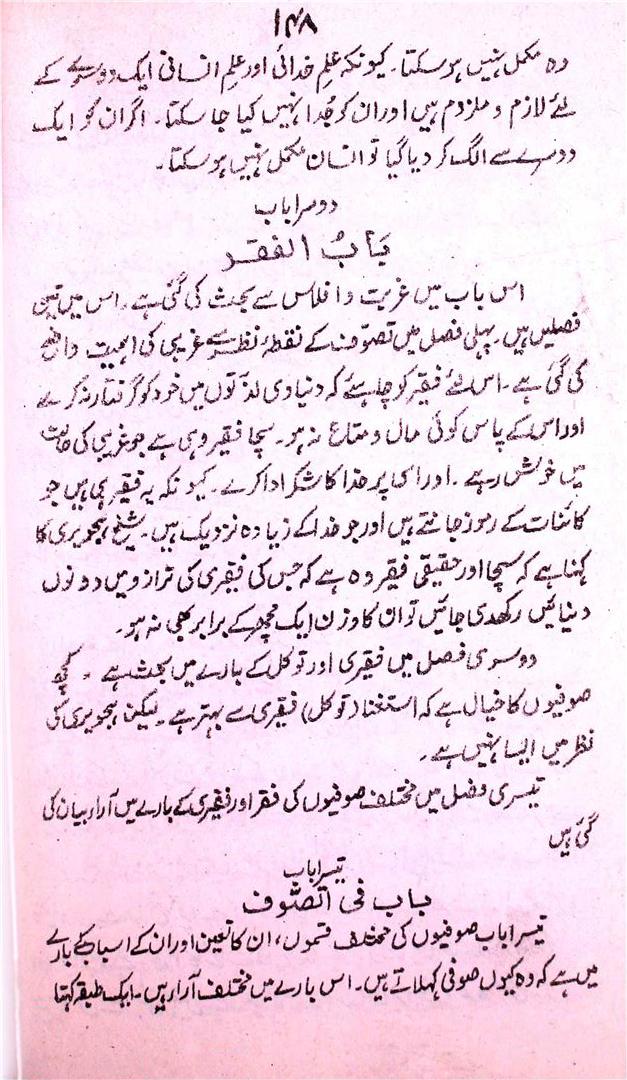 ۱۴۸
وہ مکمل نہیں ہوسکتا۔ کیونکہ علمِ خدائی اور علمِ انسانی ایک دوسرے کے
لئے لازم و ملزوم ہیں اور ان کو جُدا نہیں کیا جا سکتا۔ اگر ان کو ایک
دوسرے سے الگ کر دیا گیا تو انسان مکمل نہیں ہو سکتا۔
دوسرا باب
بَابُ الفقر
اس باب میں غربت و افلاس سے بحث کی گئی ہے۔ اس میں تین
فصلیں ہیں۔ پہلی فصل میں تصوّف کے نقطۂ نظر سے غریبی کی اہمیت واضح
کی گئی ہے۔ اس لئے فقیر کو چاہئے کہ دنیاوی لذتوں میں خود کو گرفتار نہ کرے
اور اس کے پاس کوئی مال و متاع نہ ہو۔ سچا فقیر وہی ہے جو غریبی کی حالت
میں خوش رہے۔ اور اسی پر خدا کا شکر ادا کرے۔ کیونکہ یہ فقیر ہی ہیں جو
کائنات کے رموز جانتے ہیں اور جو خدا کے زیادہ نزدیک ہیں۔ شیخ ہجویری کا
کہنا ہے کہ سچا اور حقیقی فقیر وہ ہے کہ جس کی فقیری کی ترازو میں دونوں
دنیائیں رکھدی جائیں تو ان کا وزن ایک مچھر کے برابر بھی نہ ہو۔
دوسری فصل میں فقیری اور توکل کے بارے میں بحث ہے۔ کچھ
صوفیوں کا خیال ہے کہ استغنا (توکل) فقیری سے بہتر ہے۔ لیکن ہجویری کی
نظر میں ایسا نہیں ہے۔
تیسری فصل میں مختلف صوفیوں کی فقر اور فقیری کے بارے میں آرار بیان کی
گئی ہیں
تیسرا باب
باب فی التصّوف
تیسرا باب صوفیوں کی مختلف قسموں، ان کا تعین اور ان کے اسباب کے بارے
میں ہے کہ وہ کیوں صوفی کہلاتے ہیں۔ اس بارے میں مختلف آرار ہیں۔ ایک طبقہ کہتا